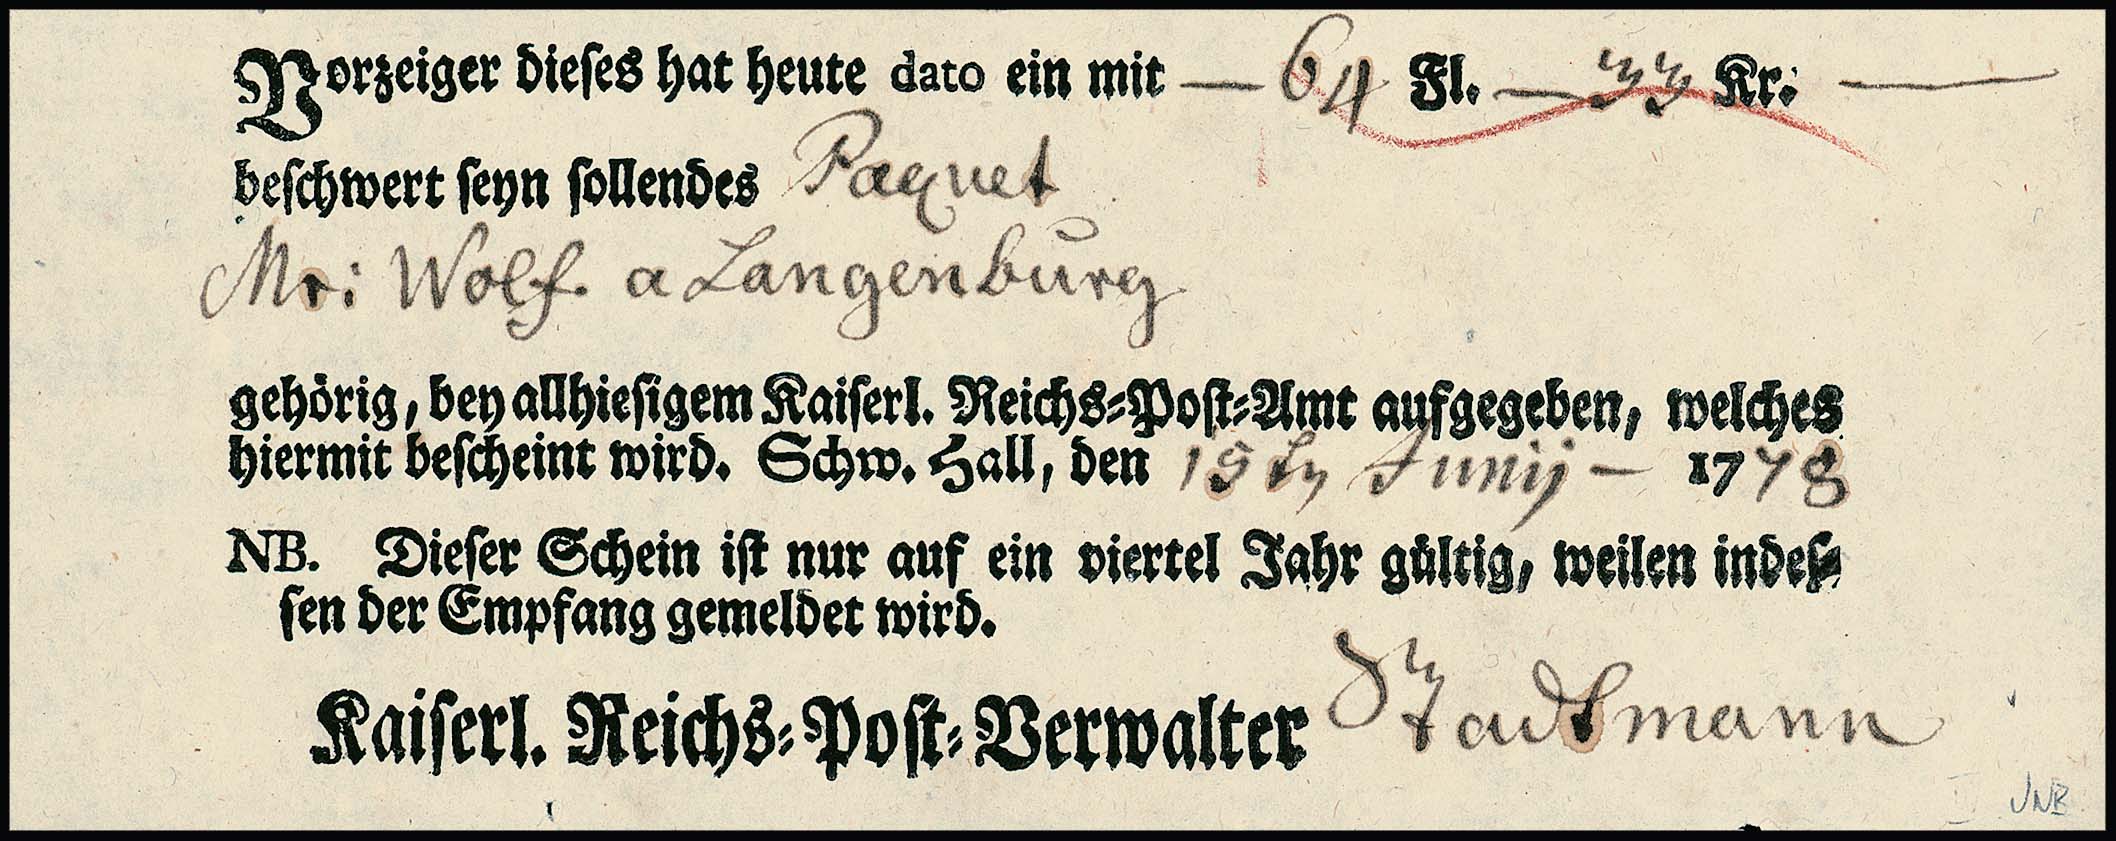 Vorzeiger dieſes hat heute dato ein mit — 64 Fl. — 33 Kr: —
beſchwert ſeyn ſollendes Paquet
Mr: Wolf. a Langenburg
gehörig, bey allhieſigem Kaiſerl. Reichs-Poſt-Amt aufgegeben, welches
hiermit beſcheint wird. Schw. Hall, den 15 tn Junij — 1778
NB. Dieſer Schein iſt nur auf ein viertel Jahr gültig, weilen indeſ-
ſen der Empfang gemeldet wird.
Kaiſerl. Reichs-Poſt-Verwalter Stadtmann